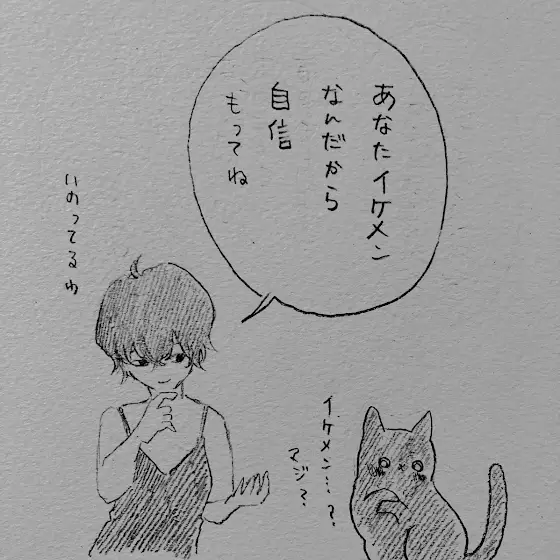 あなたイケメン
なんだから
自信
もってね
いのってるわ
イケメン…?
マジ?